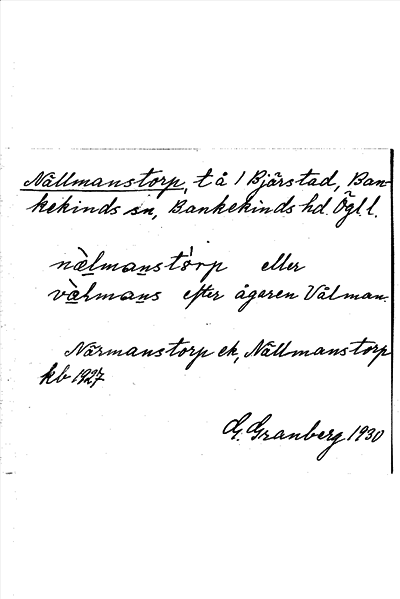 Nällmanstorp, t å 1 Bjärstad, Ban-
kekinds sn, Bankekinds hd Ögl. l.
nälmanstórp eller
välmans efter ägaren Välman.
Närmanstorp ek, Nällmanstorp
kb 1927
G. Granberg 1930